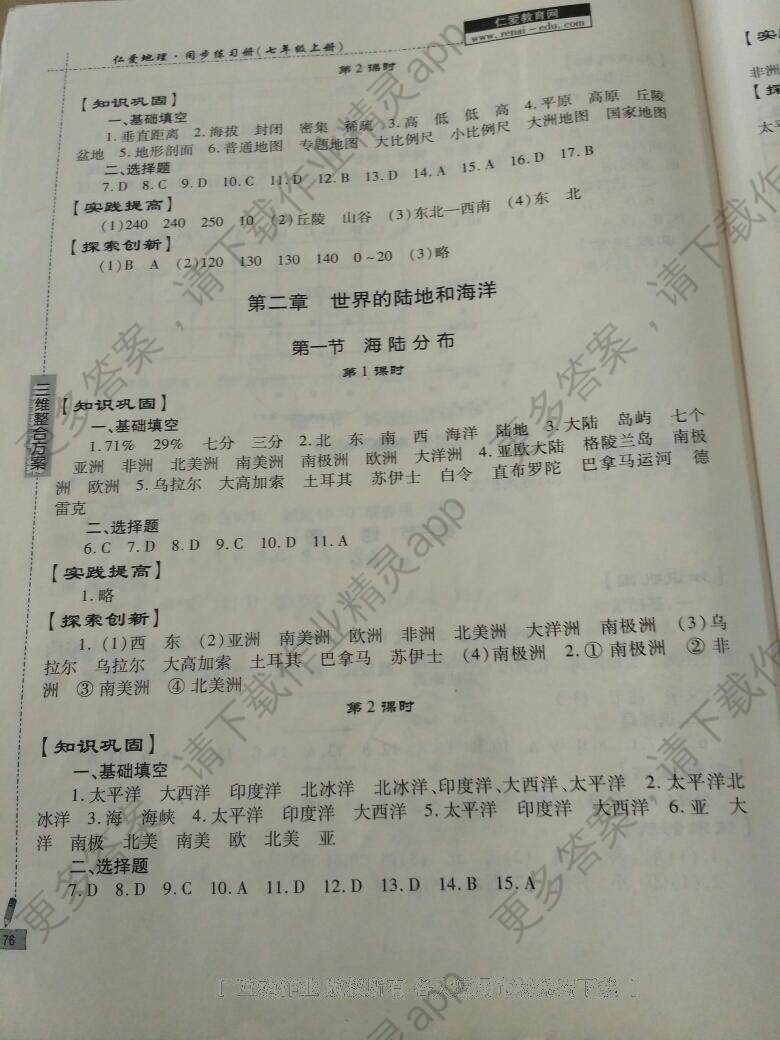 仁爱教育网
www.renai-edu.com
仁爱地理·同步练习册(七年级上册)
第2课时
【知识巩固】
一、基础填空
1.垂直距离 2.海拔 封闭 密集 稀疏 3.高 低 低 高 4.平原 高原 丘陵
盆地 5.地形剖面 6.普通地图 专题地图 大比例尺 小比例尺 大洲地图 国家地图
二、选择题
7.D 8.C 9.D 10.C 11.D 12.B 13.D 14.A 15.A 16.D 17.B
【实践提高】
(1)240 240 250 10 (2)丘陵 山谷 (3)东北—西南 (4)东 北
【探索创新】
(1)B A (2)120 130 130 140 0~20 (3)略
第二章 世界的陆地和海洋
第一节 海陆分布
第1课时
【知识巩固】
一、基础填空
1.71% 29% 七分 三分 2.北 东 南 西 海洋 陆地 3.大陆 岛屿 七个
亚洲 非洲 北美洲 南美洲 南极洲 欧洲 大洋洲 4.亚欧大陆 格陵兰岛 南极
洲 欧洲 5.乌拉尔 大高加索 土耳其 苏伊士 白令 直布罗陀 巴拿马运河 德
雷克
二、选择题
6.C 7.D 8.D 9.C 10.D 11.A
【实践提高】
1.略
【探索创新】
1.(1)西 东 (2)亚洲 南美洲 欧洲 非洲 北美洲 大洋洲 南极洲 (3)乌
拉尔 乌拉尔 大高加索 土耳其 巴拿马 苏伊士 (4)南极洲 2.①南极洲 ②非
洲 ③南美洲 ④北美洲
第2课时
【知识巩固】
一、基础填空
1.太平洋 大西洋 印度洋 北冰洋 北冰洋、印度洋、大西洋、太平洋 2.太平洋北
冰洋 3.海 海峡 4.太平洋 印度洋 大西洋 5.太平洋 印度洋 大西洋 6.亚 大
洋 南极 北美 南美 欧 北美 亚
二、选择题
7.D 8.D 9.C 10.A 11.D 12.D 13.D 14.B 15.A
三维整合方案
76
【实
非洲
【探
太平
更多答案，请下载作业精灵app
更多答案，请下载作业精灵app
更多答案，请下载作业精灵app
更多答案，请下载作